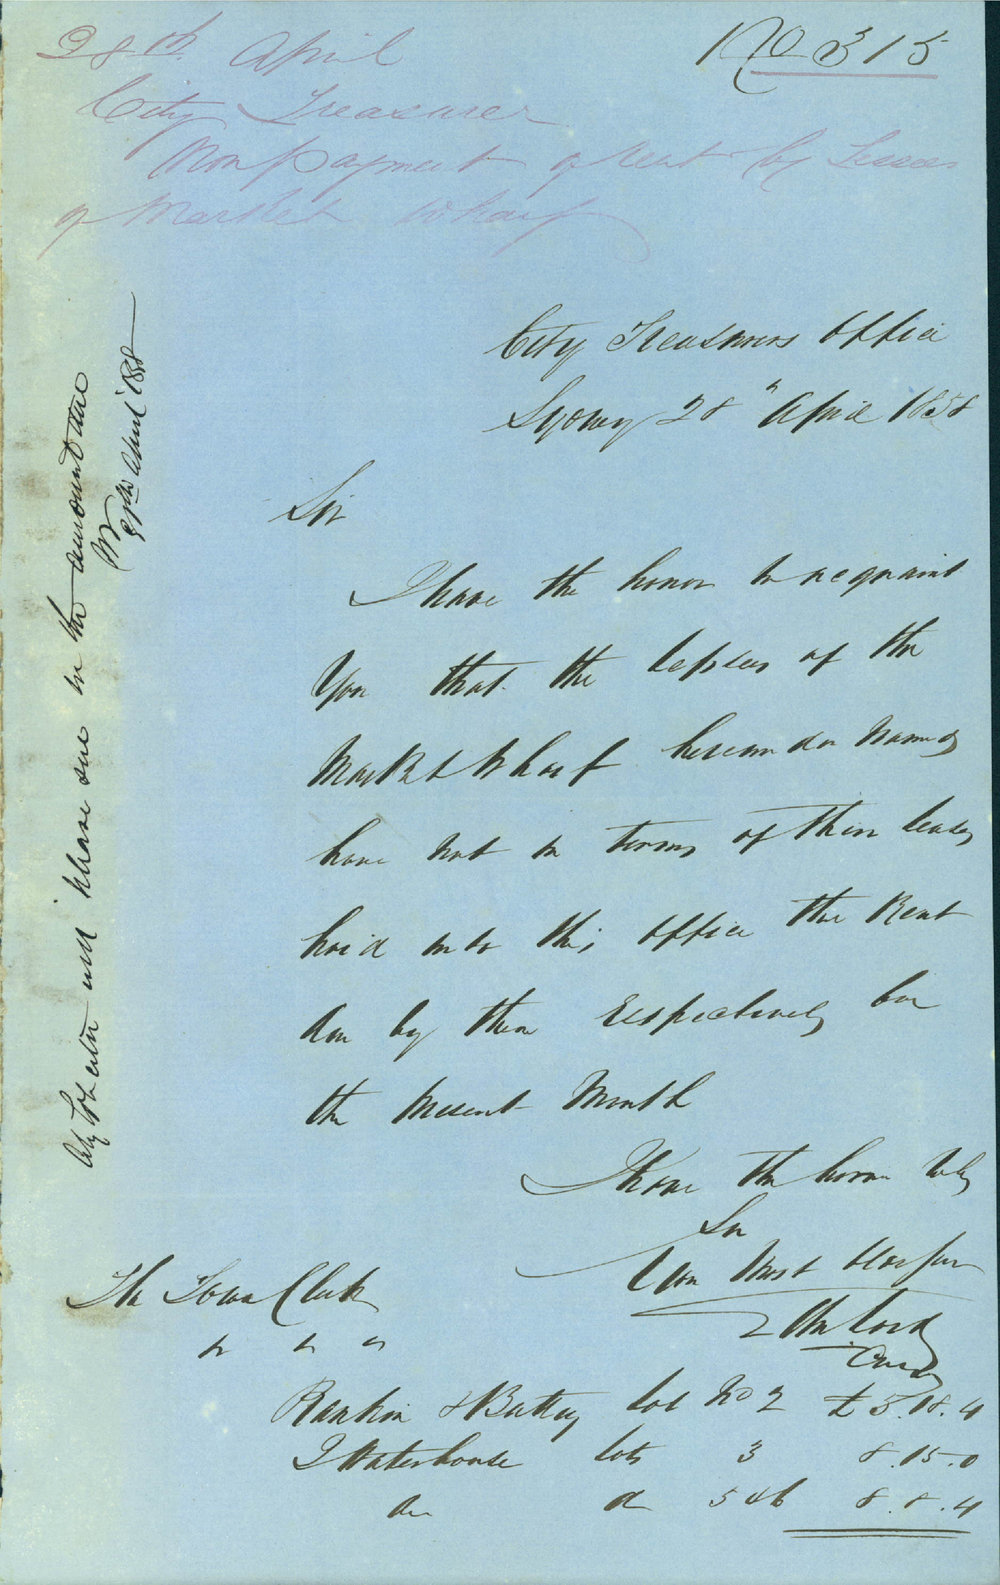 No 315
28th April
City Treasurer
Non payment of rent by Lessees
of Market Wharf
City Treasurers Office
Sydney 28" April 1858
Sir
I have the honor to acquaint
You that the lessees of the
Market Wharf hereunder Named
have not in terms of their leases
paid into this Office the Rent
due by them respectively for
the present Month
I have the honor to be
Sir
Your Most Obt Ser
Wm Lord
The Town Clerk
Rankin & Buttey Lot No 2 £ 5.18.4
J Waterhouse lots 3 8.15.0
do do 5 & 6 8.8.4
City Solicitor will please sue for the amount due
April 1858